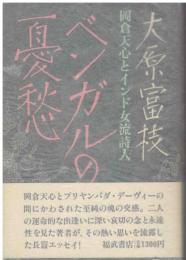 大原富枝
岡倉天心とインド女流詩人
ベンガルの
憂愁
岡倉天心とプリヤンバダ・デーヴィーの
間にかわされた至純の魂の交感。二
人の運命的な出逢いに深い哀切の念と永遠
性を見た著者が、その熱い思いを披瀝し
た長篇エッセイ! 福武書店/定価1300円